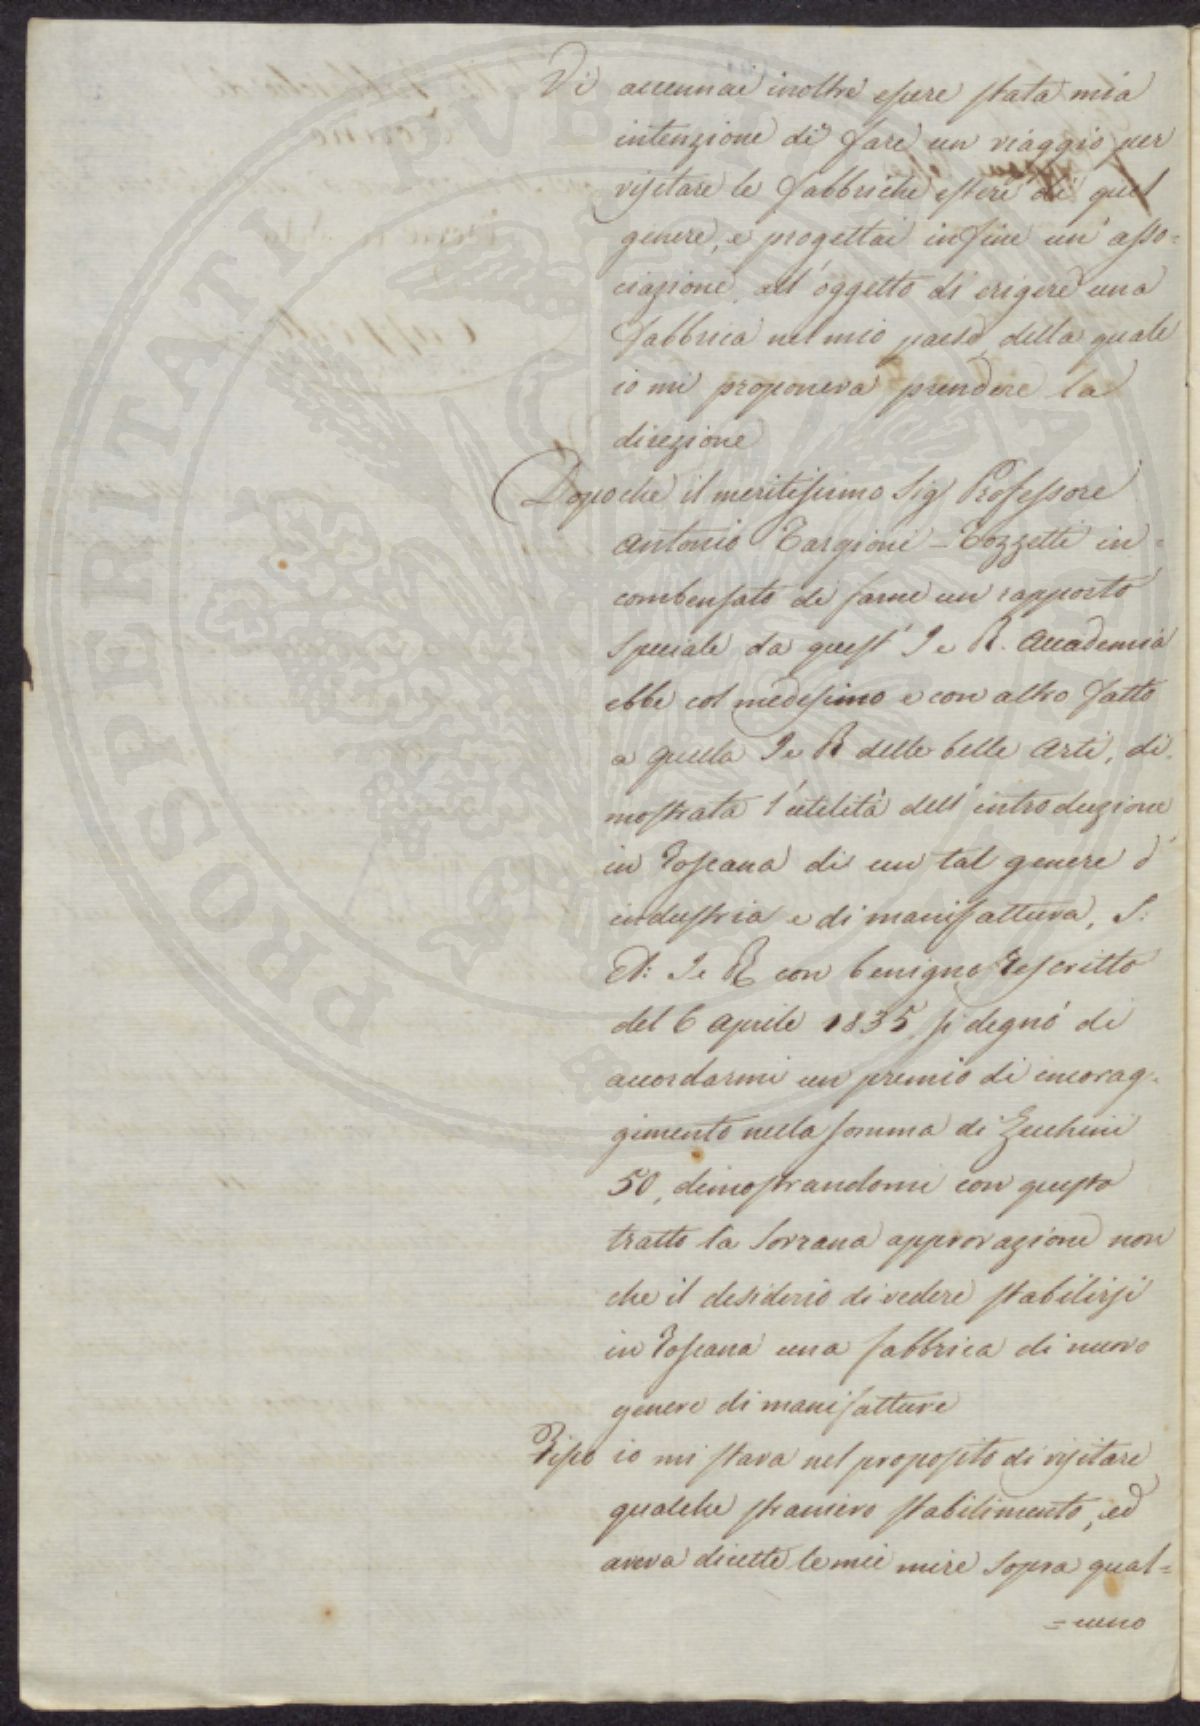 Vi accennai inoltre essere stata mia
intenzione di fare un viaggio per
visitare le fabbriche estere di quel
genere, e progettai infine un' asso=
ciazione all' oggetto di erigere una
fabbrica nel mio paese, della quale
io mi proponeva prendere la
direzione
Dopo che il meritissimo Sig Professore
Antonio Targioni - Tozzetti in=
combensato di farne un rapporto
speciale da quest' I e R. Accademia
ebbe col medesimo e con altro fatto
a quella I e R delle belle Arti, di=
mostrata l'utilità dell' introduzione
in Toscana di un tal genere d'
industria e di manifattura, S:
A: I e R con benigno Rescritto
del 6 Aprile 1835, si degnò di
accordarmi un premio di incorag=
gimento nella somma di Zecchini
50, dimostrandomi con questo
tratto la Sovrana approvazione non
che il desiderio di vedere stabilirsi
in Toscana una fabbrica di nuovo
genere di manifatture
Fisso io mi stava nel proposito di visitare
qualche straniero stabilimento, ed
aveva dirette le mie mire sopra qual=
=cuno
PROSPERITATI PVBLICAE